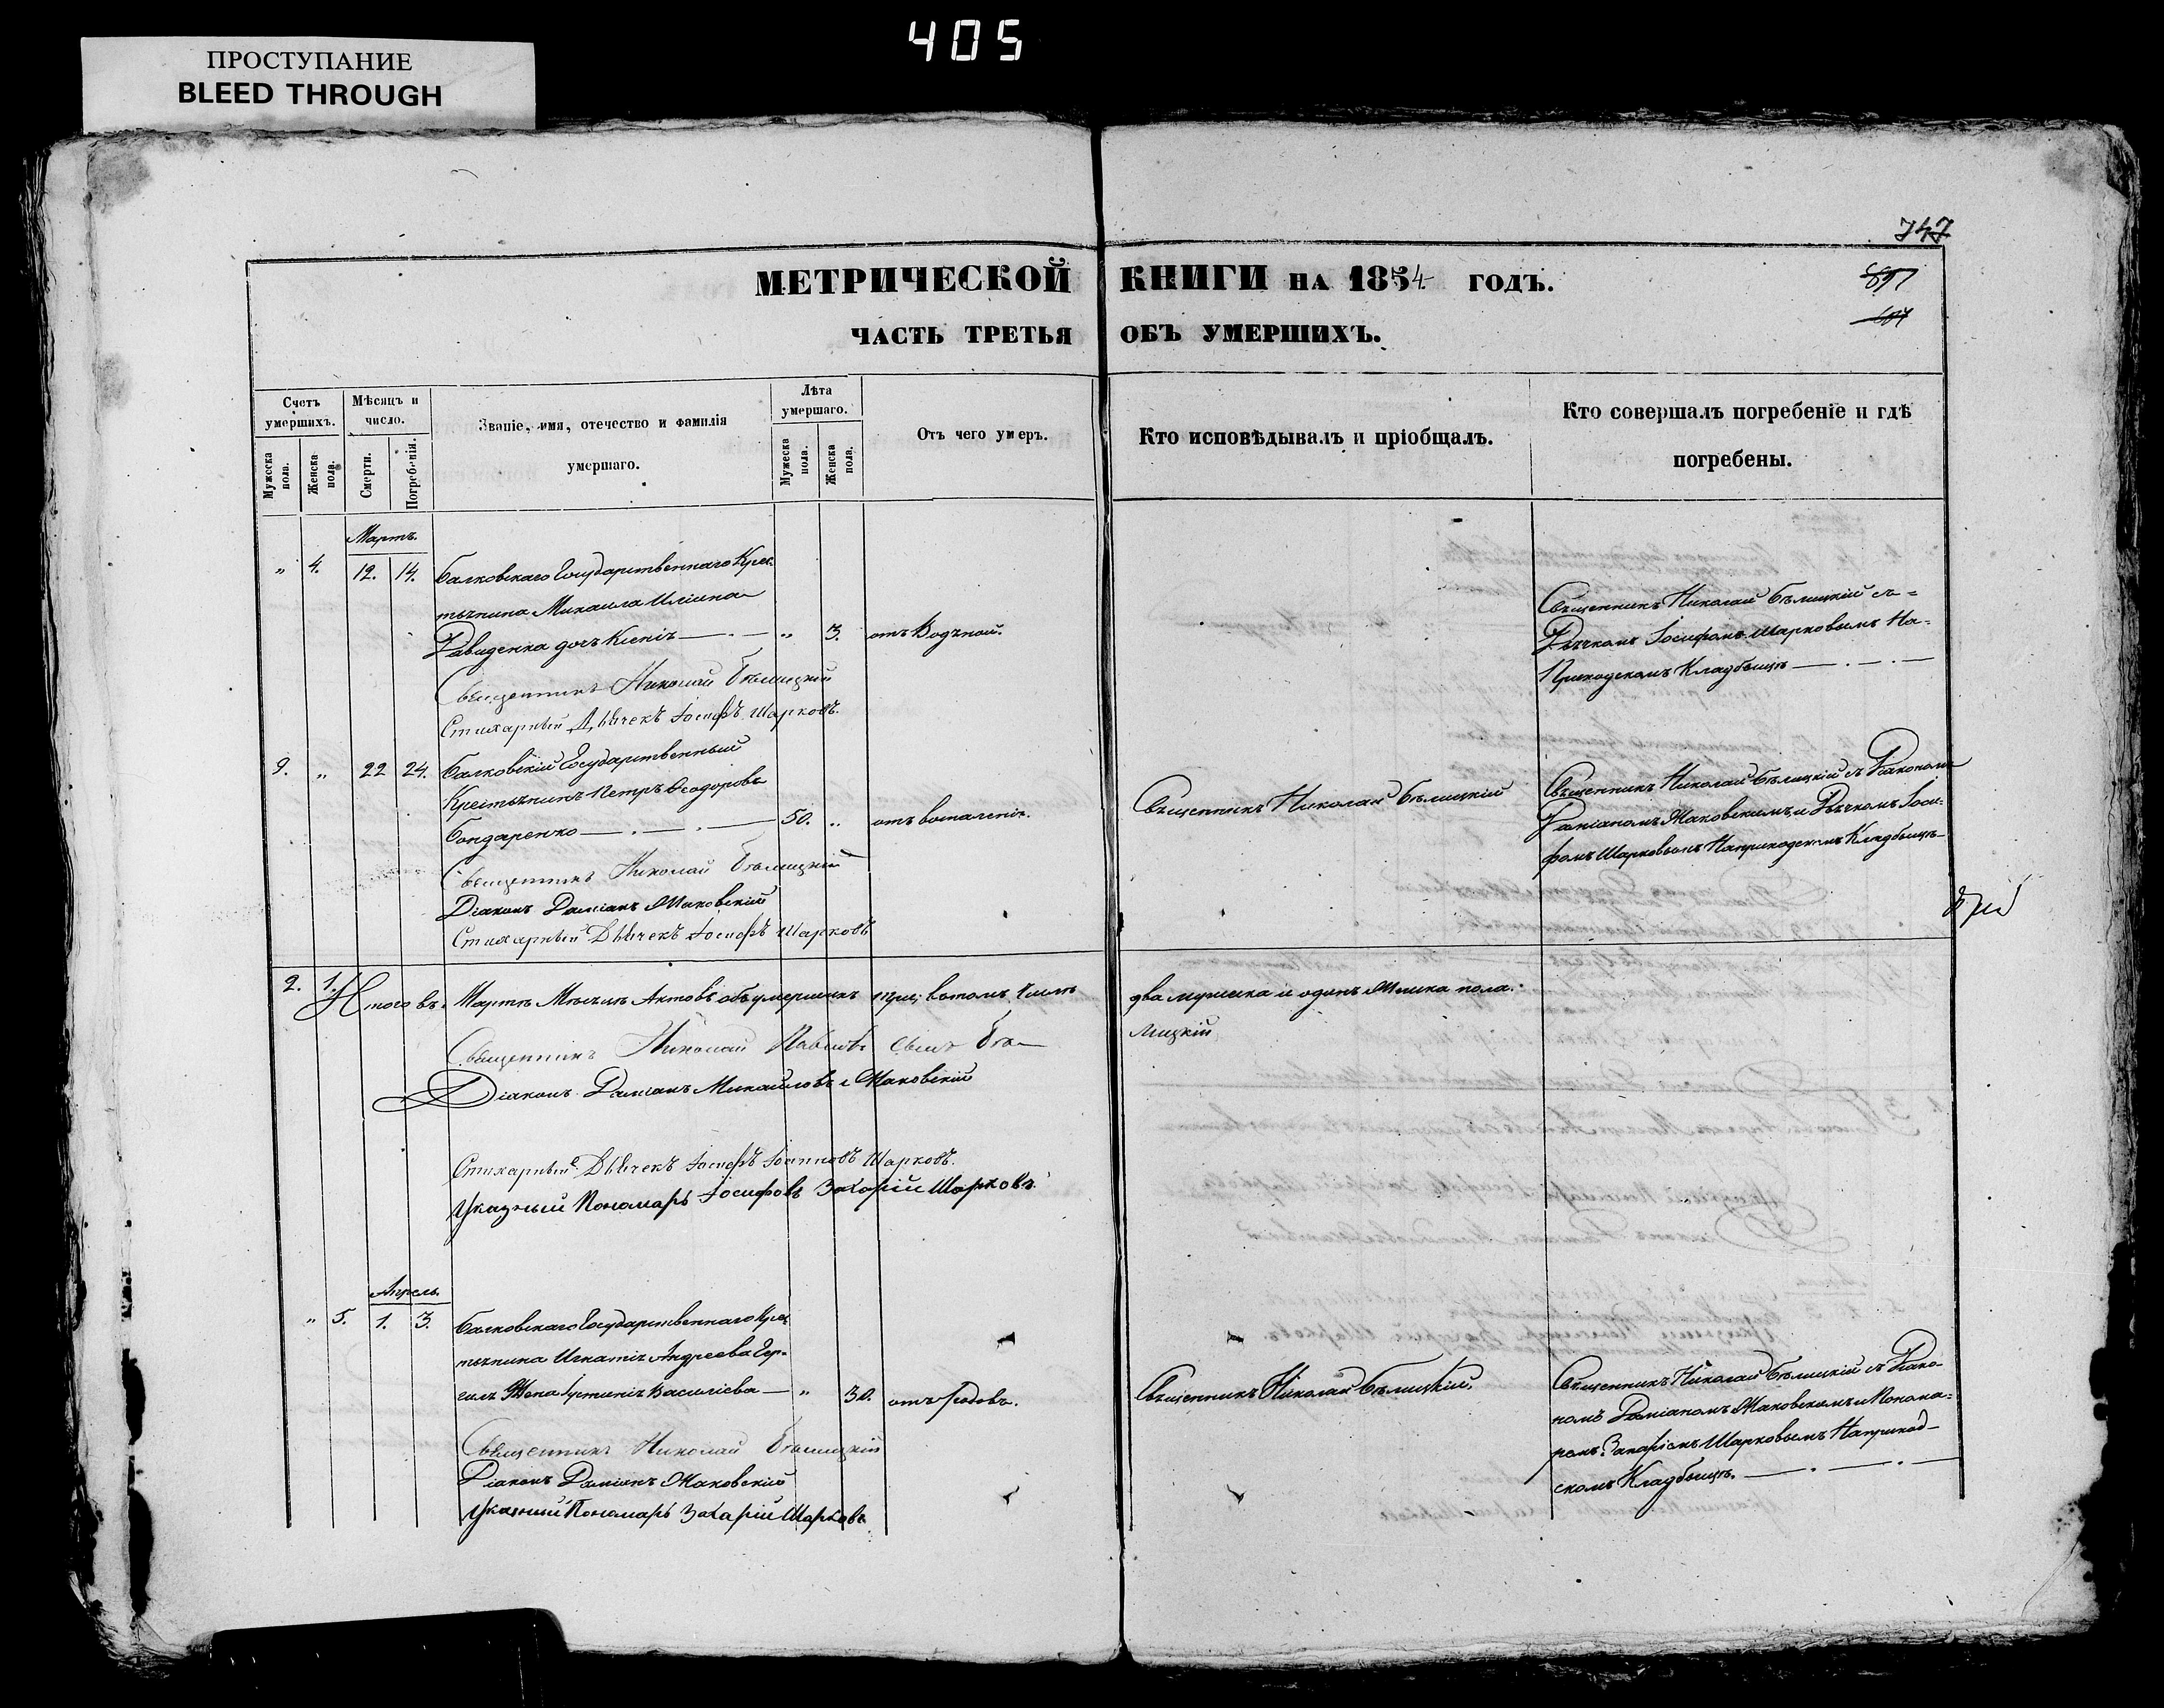 405
ПРОСТУПАНИЕ
BLEED THROUGH
747
МЕТРИЧЕСКОЙ КНИГИ НА 1854 ГОДЪ.
ЧАСТЬ ТРЕТЬЯ ОБЪ УМЕРШИХЪ.
Счетъ умершихъ.
Мужеска пола.
Женска пола.
Мѣсяцъ и число.
Смерти.
Погребенія.
Званіе, имя, отечество и фамилія
умершаго.
Лѣта умершаго.
Мужеска пола.
Женска пола.
Отъ чего умеръ.
Кто исповѣдывалъ и пріобщалъ.
Кто совершалъ погребеніе и гдѣ
погребены.
Мартъ.
" 4. 12. 14. Балковскаго Государственнаго Крес
тьянина Михаила Иліина
Давиденка дочь Ксенія " 3. отъ Водяной.
Священникъ Николай Бѣлицкій
Стихарный Дьячекъ Іосифъ Шарковъ.
Священникъ Николай Бѣлицкій съ
Дьячкомъ Іосифомъ Шарковымъ На
Приходскомъ Кладбищѣ
9. " 22 24. Балковскій Государственный
Крестьянинъ Петръ Ѳеодоровъ
Бондаренко 50. " отъ воспаленія.
Священникъ Николай Бѣлицкій
Діаконъ Даміанъ Маковскій
Стихарный Дьячекъ Іосифъ Шарковъ
Священникъ Николай Бѣлицкій
Священникъ Николай Бѣлицкій съ Діакономъ
Даміаномъ Маковскимъ и Дьячкомъ Іоси-
фомъ Шарковымъ На приходскомъ Кладбищѣ
2. 1. Итого въ Мартѣ Мѣсяцѣ Актовъ объ умершихъ три; въ томъ числѣ два мужска и одинъ Женска пола.
Священникъ Николай Павловъ сынъ Бѣ-
лицкій
Діаконъ Даміанъ Михайловъ Маковскій
Стихарный Дьячекъ Іосифъ Шарковъ.
Указный Пономарь Іосифовъ Захарій Шарковъ.
Апрель
" 5. 1. 3. Балковскаго Государственнаго Крес
тьянина Игнатія Андреева
Жена Іустинія Василіева " 30. отъ Родовъ.
Священникъ Николай Бѣлицкій
Діаконъ Даміанъ Маковскій
Указный Пономарь Захарій Шарковъ
Священникъ Николай Бѣлицкій.
Священникъ Николай Бѣлицкій съ Діако-
номъ Даміаномъ Маковскимъ и Понома-
ремъ Захаріемъ Шарковымъ На приход-
скомъ Кладбищѣ.